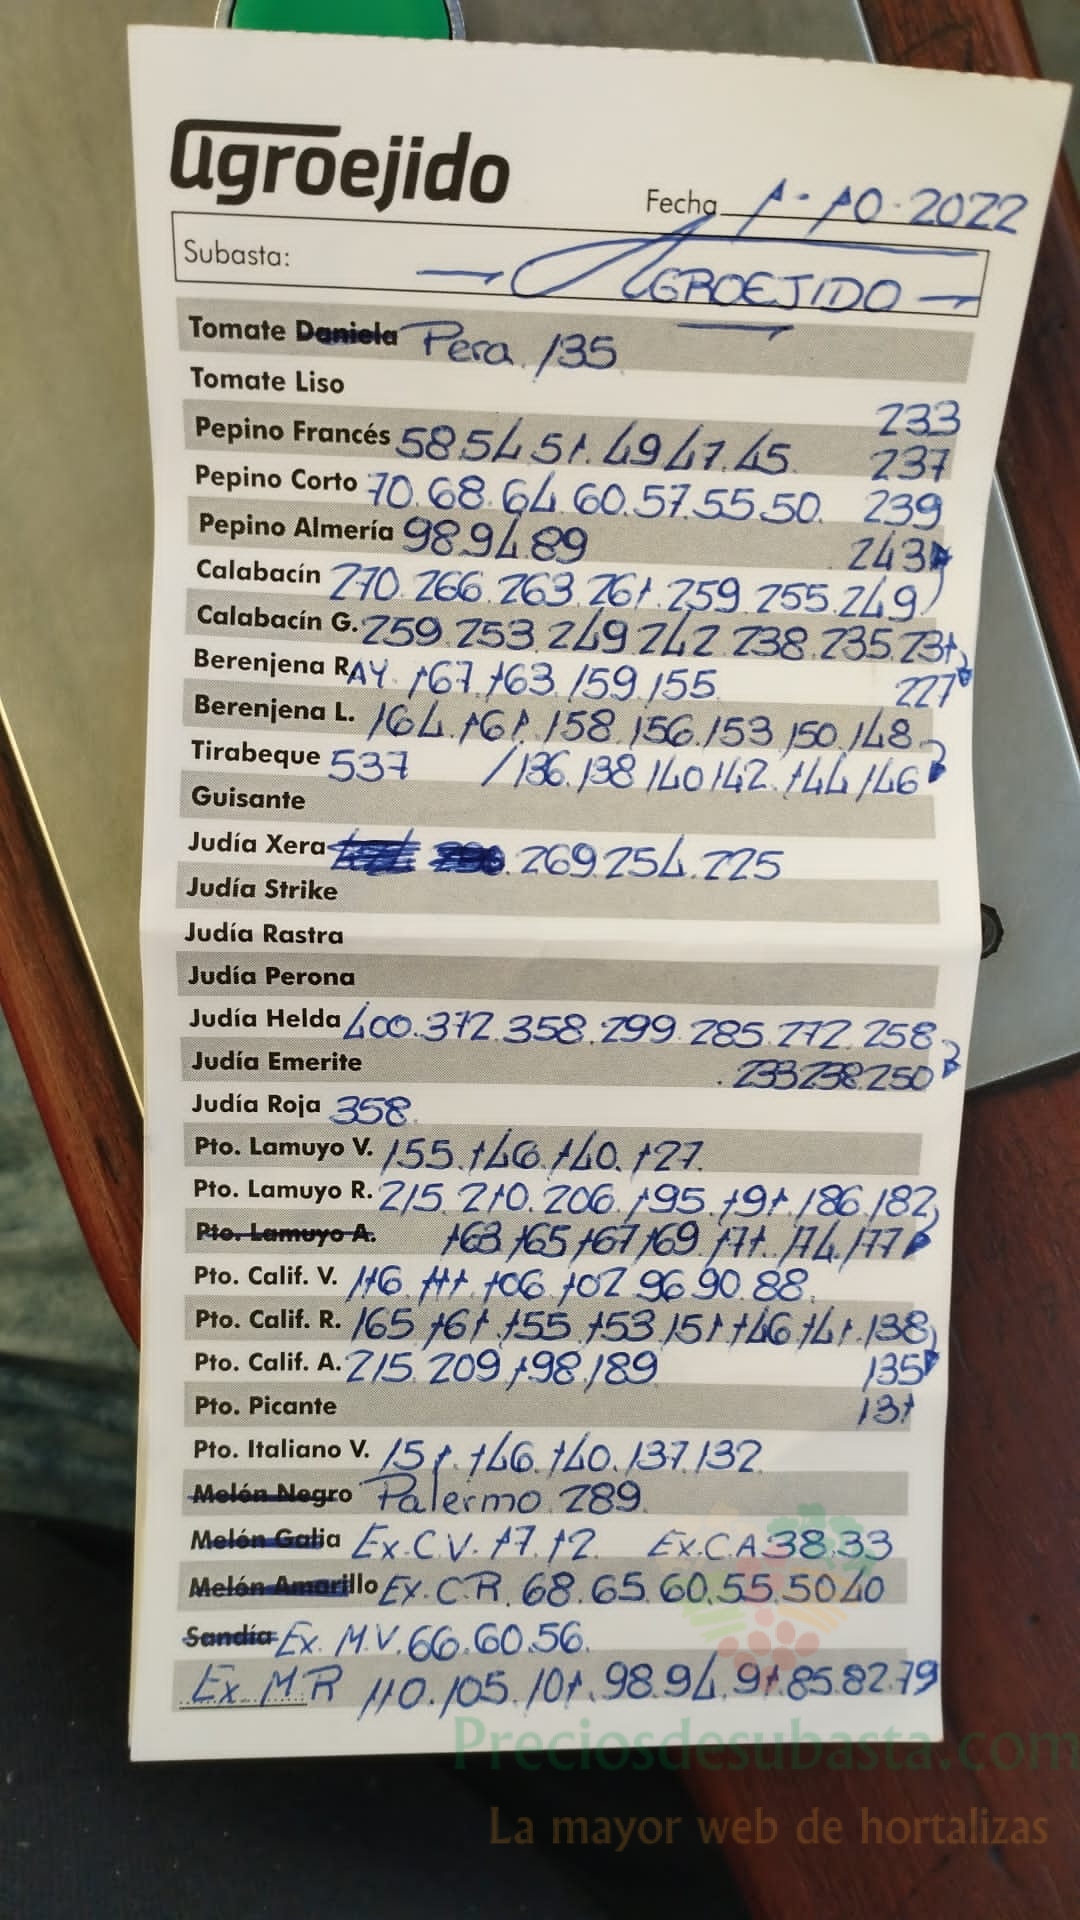 agroejido
Fecha 1-10-2022
Subasta: AGROEJIDO
Tomate Daniela Pera. 135
Tomate Liso 233
Pepino Francés 58.54.51.49.47.45. 237
Pepino Corto 70.68.64.60.57.55.50. 239
Pepino Almería 98.94.89 243
Calabacín 270.266.263.261.259.255.249
Calabacín G. 259.253.249.242.238.235.231
Berenjena RAY. 167.163.159.155. 227
Berenjena L. 164.161.158.156.153.150.148
Tirabeque 537 /136.138.140.142.144.146
Guisante
Judía Xera 269.254.225
Judía Strike
Judía Rastra
Judía Perona
Judía Helda 400.372.358.299.285.272.258
Judía Emerite .233.238.250
Judía Roja 358.
Pto. Lamuyo V. 155.146.140.127.
Pto. Lamuyo R. 215.210.206.195.191.186.182
Pto. Lamuyo A. 163.165.167.169.171.174.177
Pto. Calif. V. 116.111.106.102.96.90.88.
Pto. Calif. R. 165.161.155.153.151.146.141.138
Pto. Calif. A. 215.209.198.189 135
Pto. Picante 131
Pto. Italiano V. 151.146.140.137.132.
Melón Negro Palermo 289.
Melón Galia Ex.C.V. 17.12. Ex.C.A 38.33
Melón Amarillo Ex.C.R. 68.65.60.55.50.40
Sandía Ex. M.V. 66.60.56.
Ex. M.R 110.105.101.98.94.91.85.82.79
Preciosdesubasta.com
La mayor web de hortalizas